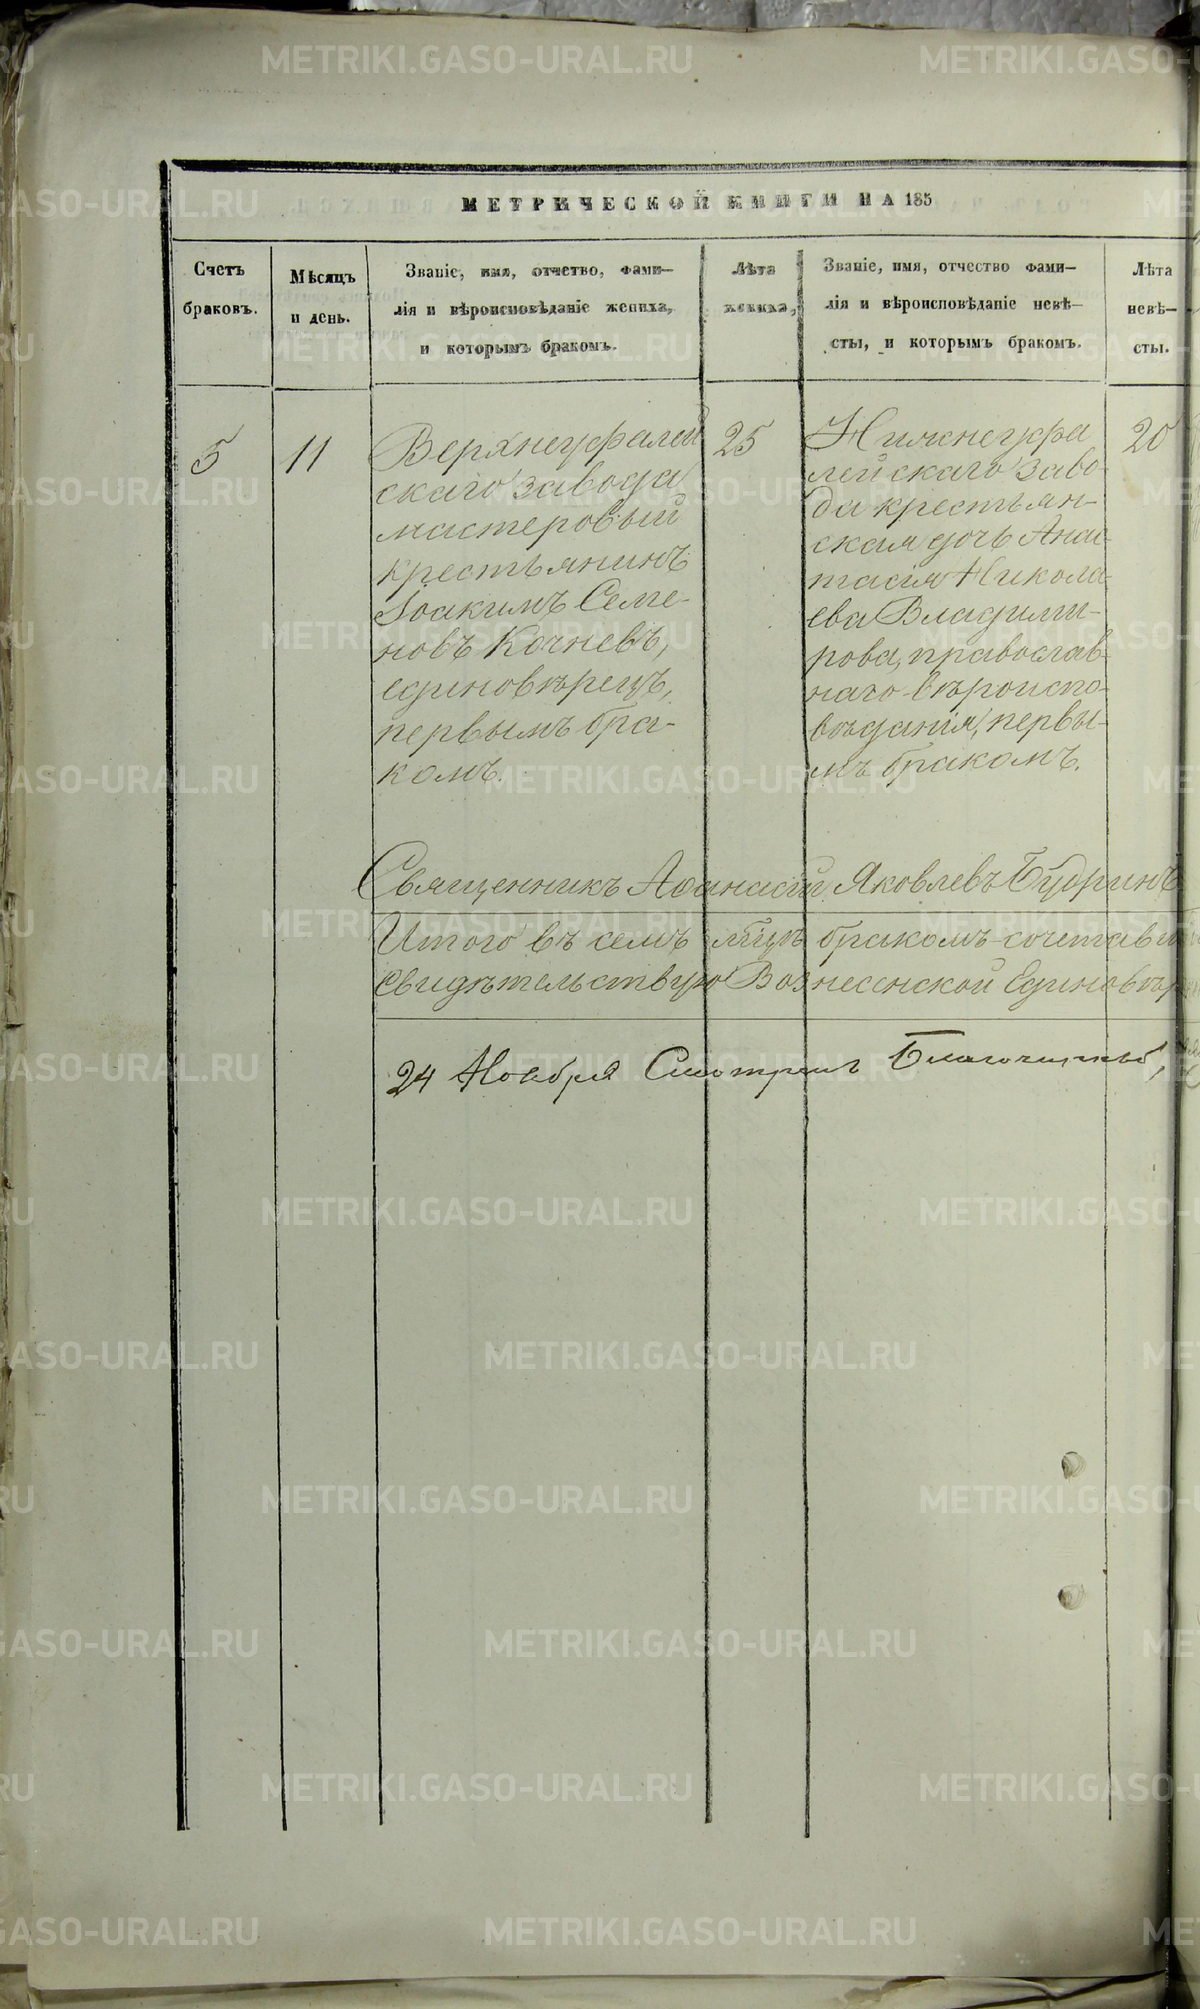 МЕТРИЧЕСКОЙ КНИГИ НА 185
Счетъ
браковъ.
Мѣсяцъ
и день.
Званіе, имя, отчетво, фами—
лія и вѣроисповѣданіе жениха,
и которымъ бракомъ.
Лѣта
жениха,
Званіе, имя, отчество фами—
лія и вѣроисповѣданіе невѣ—
сты, и которымъ бракомъ.
Лѣта
невѣ—
сты.
5
11
Верхнеуфалей
скаго завода
мастеровый
крестьянинъ
Іоакимъ Семе-
новъ Кочневъ,
единовѣрецъ,
первымъ бра-
комъ.
25
Нижнеуфа
лейскаго заво-
да крестьян-
ская дочь Анас-
тасія Никола-
ева Владими-
рова, православ-
наго вѣроиспо-
вѣданія, первы-
мъ бракомъ.
20
Священникъ Аѳанасій Яковлевъ Будринъ
Итого въ семъ мцѣ бракомъ сочетав
свидѣтельствую Вознесенской Единовѣр
24 Ноября Смотрилъ Благочинный,
METRIKI.GASO-URAL.RU